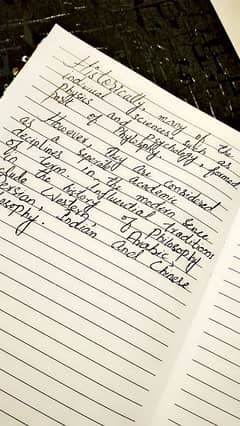 Historically, many of the
individual sciences, such as
physics and psychology, formed
part of Philosophy.
However, they are considered
as a separate academic
deciplines in the modern sence
of term. Influencial traditions
in the history of Philosophy
clude Western, Arabic,
ersian, Indian and Chinese
osophy.